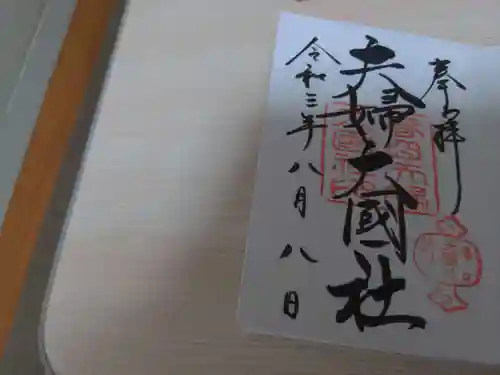 奉拝
夫婦大國社
令和三年八月八日